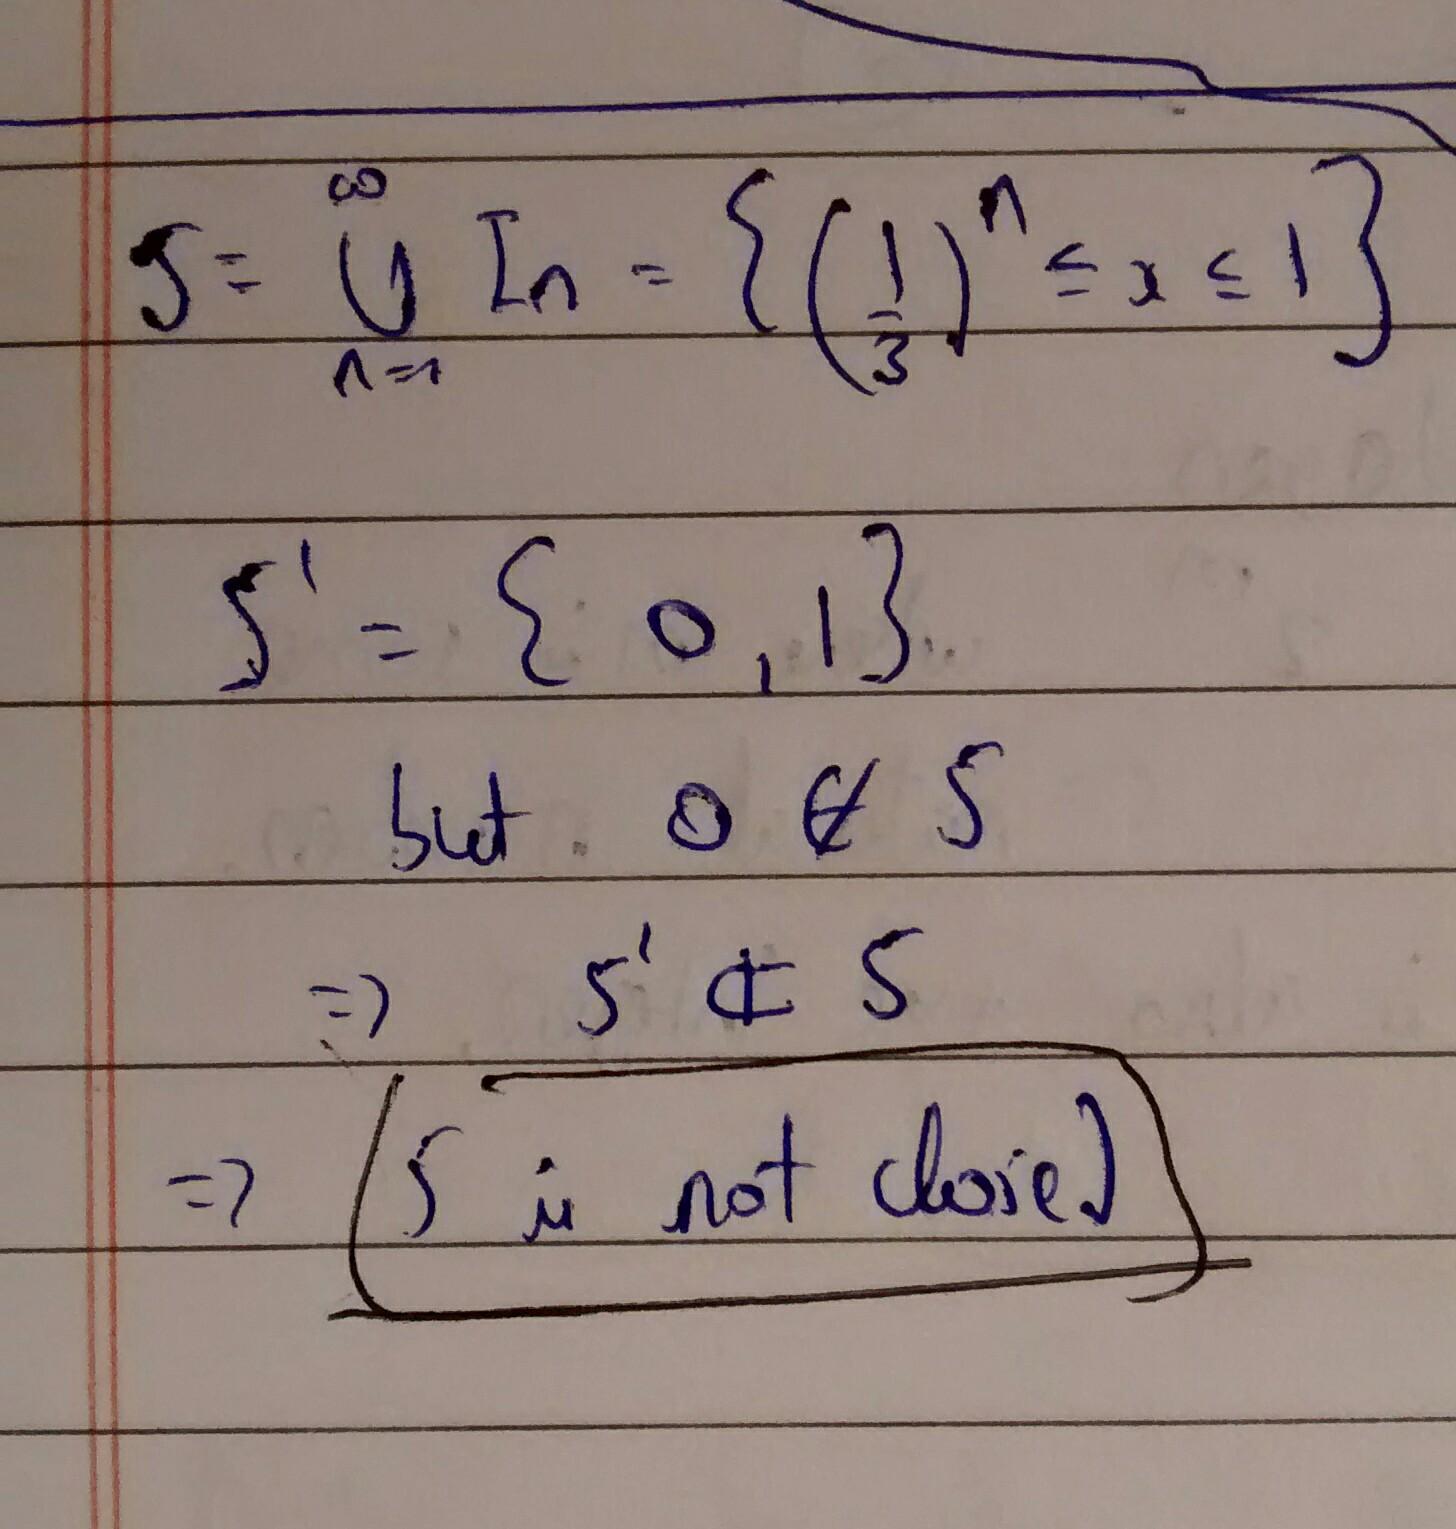 S = ∞ ⋃ n=1 In = { (1/3)^n ≤ x ≤ 1 }
S' = { 0, 1 }
but 0 ∉ S
=> S' ⊄ S
=> S is not closed